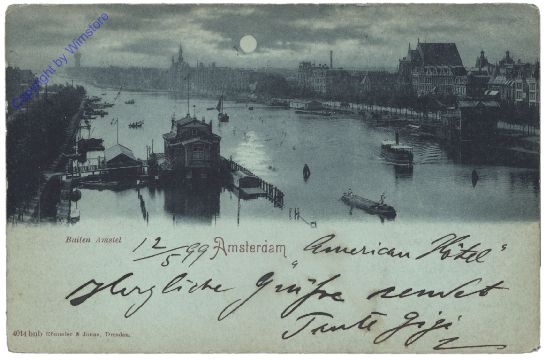 Copyright by Wimstore
Buiten Amstel
12/5 99 Amsterdam "American Hôtel"
Herzliche Grüße sendet
Tante Gigi
4014 bnb Römmler & Jonas, Dresden.